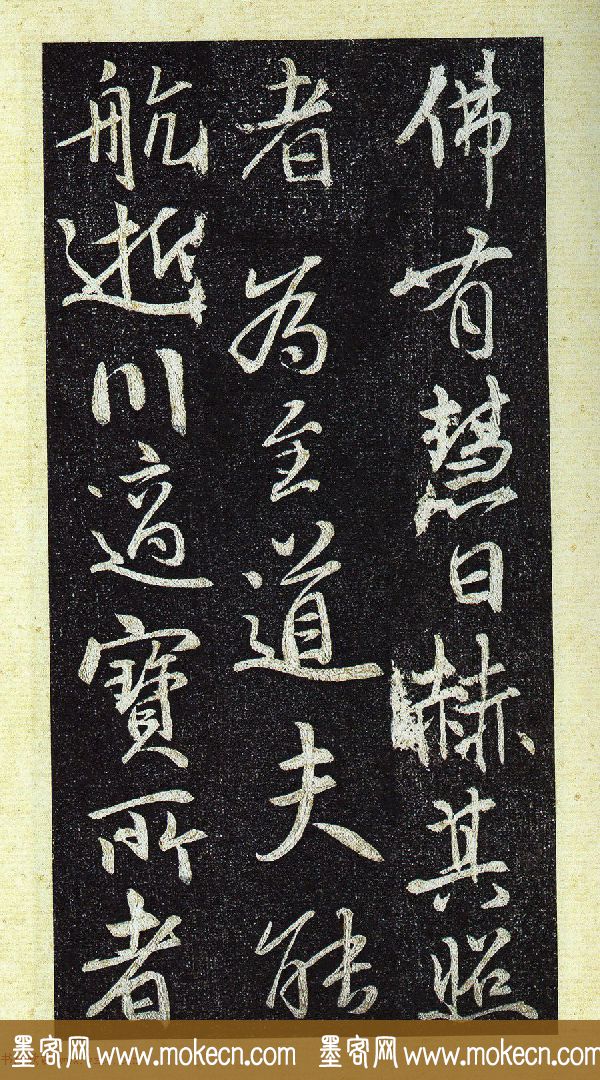 佛有慧日赫其照
者為至道夫能
航逝川適寶所者
墨客网 www.mokecn.com 墨客网 www.mokecn.com